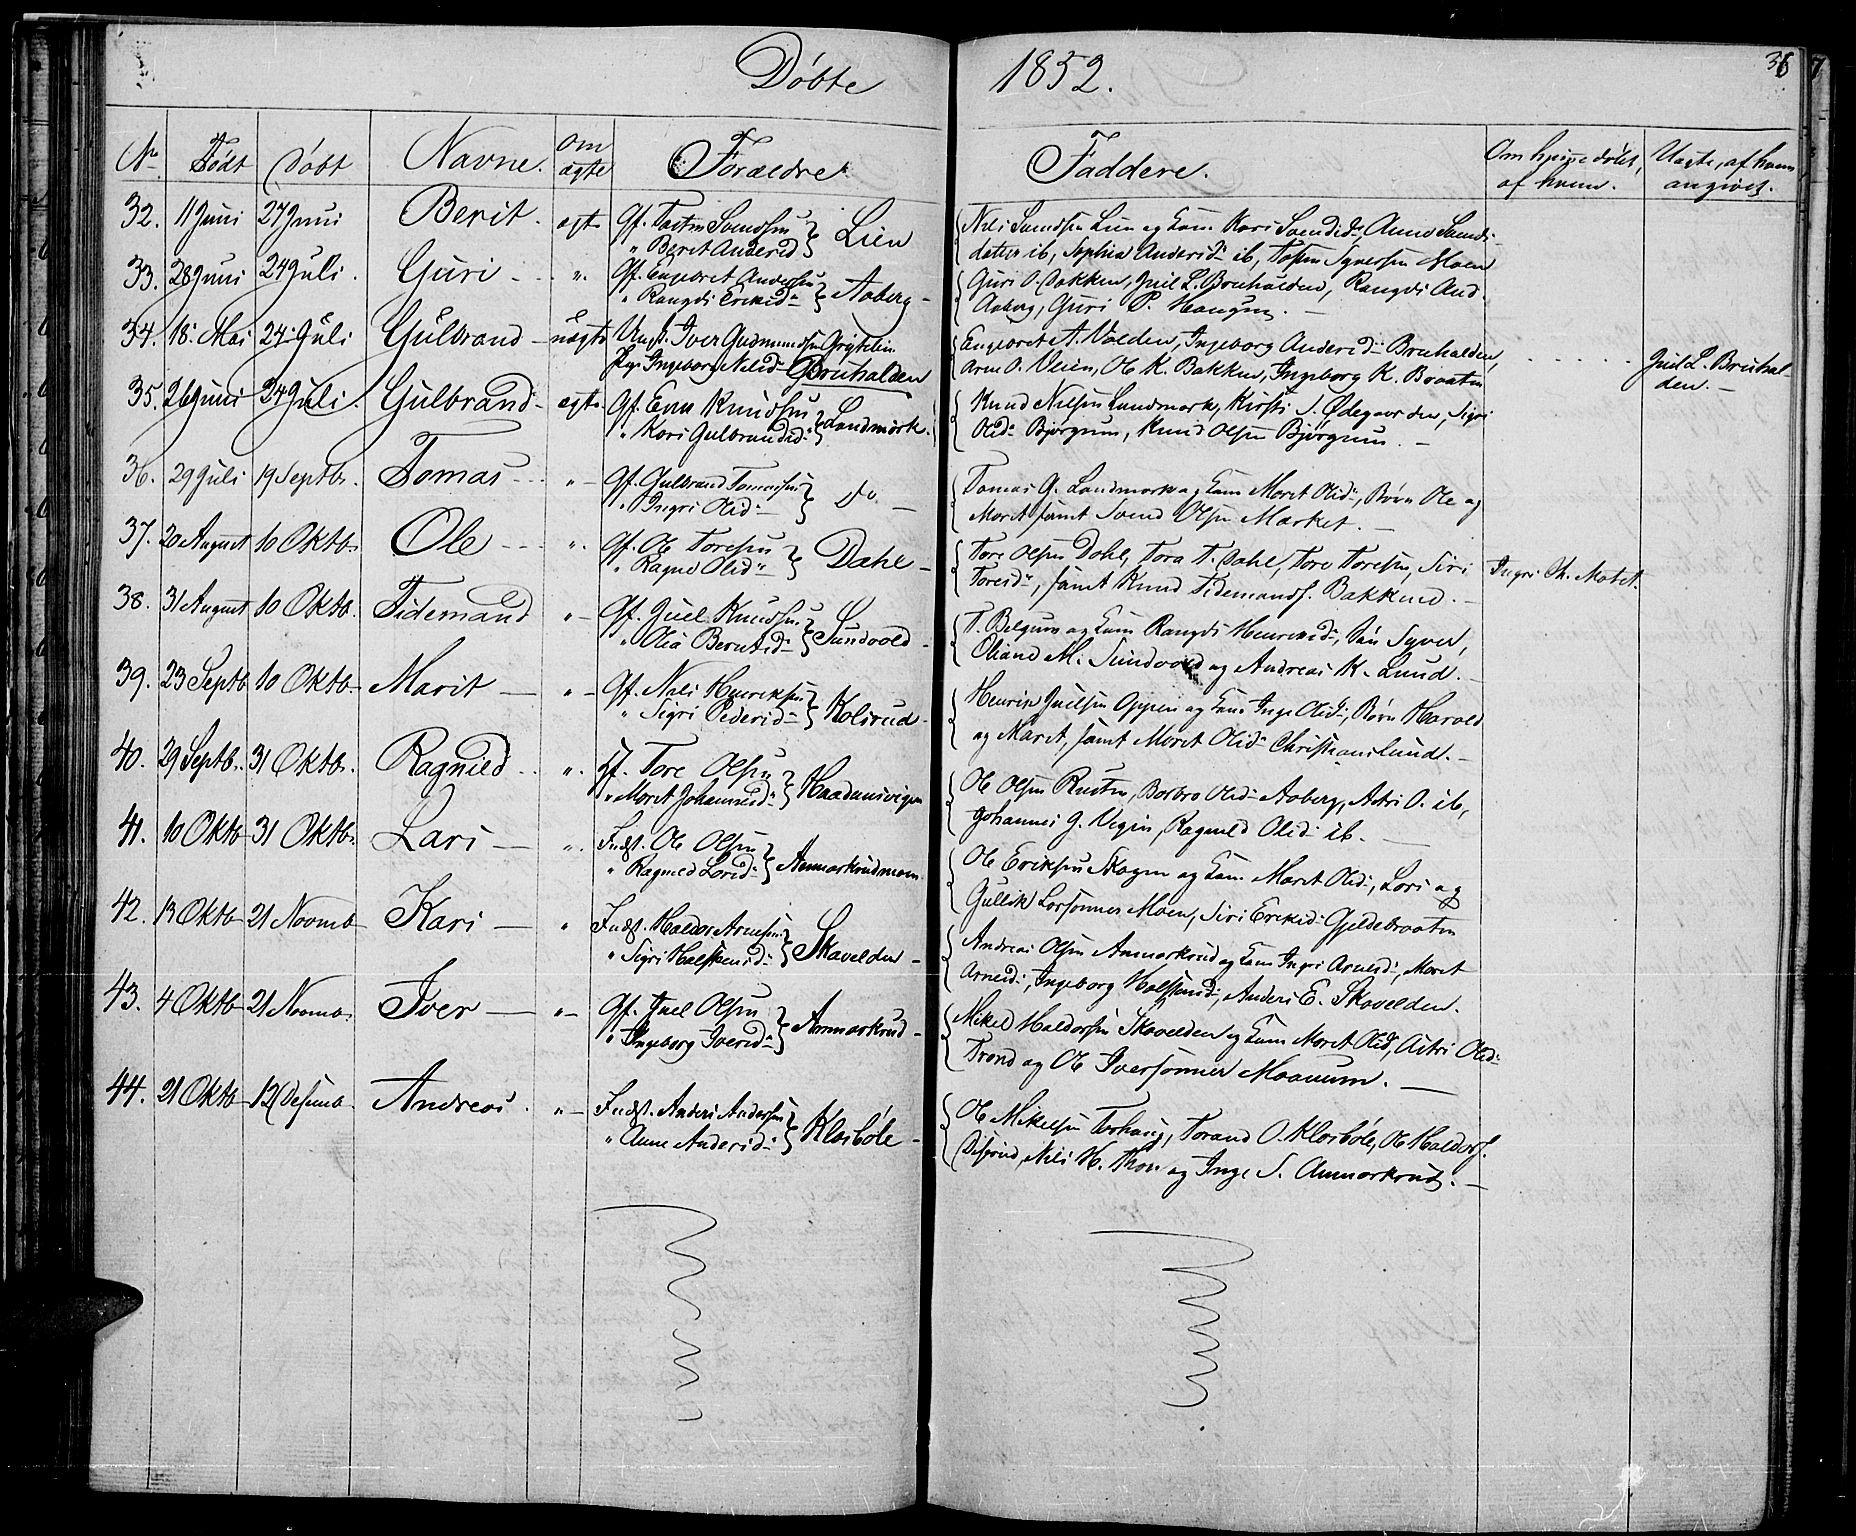 Døbte 1852. 36 7
No Født Døbt Navne. Om ægte Forældre Faddere. Om hjemmedøbt, af hvem. Uægte, af hvem angivet.
32. 11 Juni 27 Juni Berit. ægte Gf. Svendsen
" Beret Andersd } Lien
Nils Svendsen Lien og Kone Kari Svendsd Anne Svends-
datter ib, Sophia Andersd ib, Syversen Moen
33. 28 Juni 24 Juli. Guri - " Gf. Engebret Andersen
" Rangdi Eriksd } Aaberg -
Guri O. Bakken, Juel L. Bruhalden, Rangdi And.
Aaberg, Guri P. Haugen. -
34. 18. Mai 24 Juli Gulbrand - uægte Ungk. Iver Gudmundsen
Pig. Ingeborg Nilsd Bruhalden
Engebret A. Volden, Ingeborg Andersd Bruhalden,
Arne O. Veien, Ole K. Bakken, Ingeborg K. Braaten
Juel L. Bruhal-
den. -
35. 26 Juni 24 Juli. Gulbrand - ægte Gf. Even Knudsen
" Kari Gulbrandsd } Landmark.
Knud Nilsen Landmark, Kirsti S. Ødegaarden, Sigri
Olsd Bjørgum, Knud Olsen Bjørgum. -
36. 29 Juli 19 Septbr. Tomas - " - Gf. Gulbrand Tomasen
" Ingri Olsd } do -
Tomas G. Landmark og Kone Maret Olsd, Børn Ole og
Marit samt Svend Olsen Market. -
37. 20 August 10 Oktb. Ole - " Gf. Ole Toresen
" Ragne Olsd } Dahl -
Tore Olsen Dahl, Tora T. Dahl, Tore Toresen, Siri
Toresd, samt Knud Tidemands. Bakkene. -
Ingri Th.
38. 31 August 10 Oktb. Tidemand " - Gf. Juel Knudsen
" Olia Berntsd } Sundvold -
T. Belgum og Kone Rangdi Henriksd, Søn Syver,
Oliane M. Sundvold og Andreas K. Lund. -
39. 23 Septb 10 Oktb - Marit - " - Gf. Nils Henriksen
" Sigri Pedersd } Kolsrud -
Henrik Juelsen Oppen og Kone Inge Olsd, Børn Harald
og Maret, samt Maret Olsd Christianslund. -
40. 29 Septb. 31 Oktb. Ragnild " Gf. Tore Olsen
" Maret Johannesd }
Ole Olsen Rusten, Barbro Olsd Aaberg, Astri O. ib,
Johannes G. Vigen, Ragnild Olsd ib. -
41. 10 Oktb 31 Oktb. Lars - " Indst. Ole Olsen
" Ragnild Larsd } Anmarkrudmoen
Ole Eriksen Skagen og Kone Maret Olsd, Lars og
Gullik Larssønner Moen, Siri Eriksd Gjeldebraaten
42. 13 Oktb 21 Novmb Kari - " Indst. Haldor Arnesen
" Sigri Halstensd } Skavelden -
Andreas Olsen Anmarkrud og Kone Ingri Arnesd, Maret
Arnesd, Ingeborg Halstensd, Anders E. Skavelden.
43. 4 Oktb 21 Novmb. Iver - " - Gf. Juel Olsen
" Ingeborg Iversd } Anmarkrud -
Mikel Haldorsen Skavelden og Kone Maret Olsd, Astri Olsd
Trond og Ole Iverssønner Moanum. -
44. 21 Oktb 12 Desemb. Andreas. " - Indst. Anders Andersen
" Anne Andersd } Klosbøle -
Ole Mikelsen Terhaug, Torand O. Klosbøle, Ole Haldors.
Disrud, Nils H. Thon og Inge S. Anmarkrud. -